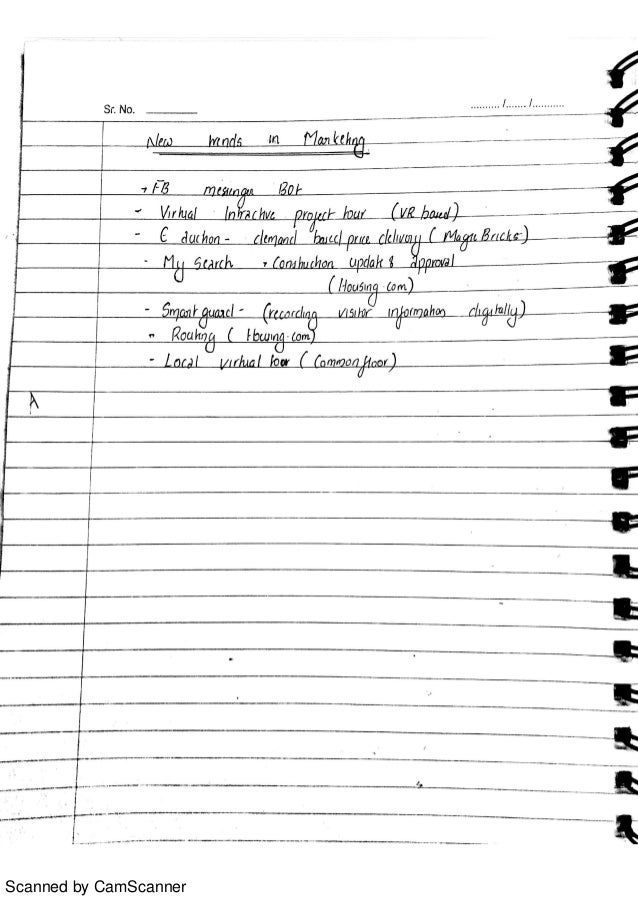 Sr. No. ________ ........../......./...........
New trends in Marketing
→ FB messenger Bot
- Virtual Intractive project tour (VR based)
- E auction - demand based price delivery (Magic Bricks)
- My Search → Construction update & Approval
(Housing.com)
- Smart guard - (recording visitor information digitally)
- Routing (Housing.com)
- Local virtual tour (Commonfloor)
A
Scanned by CamScanner